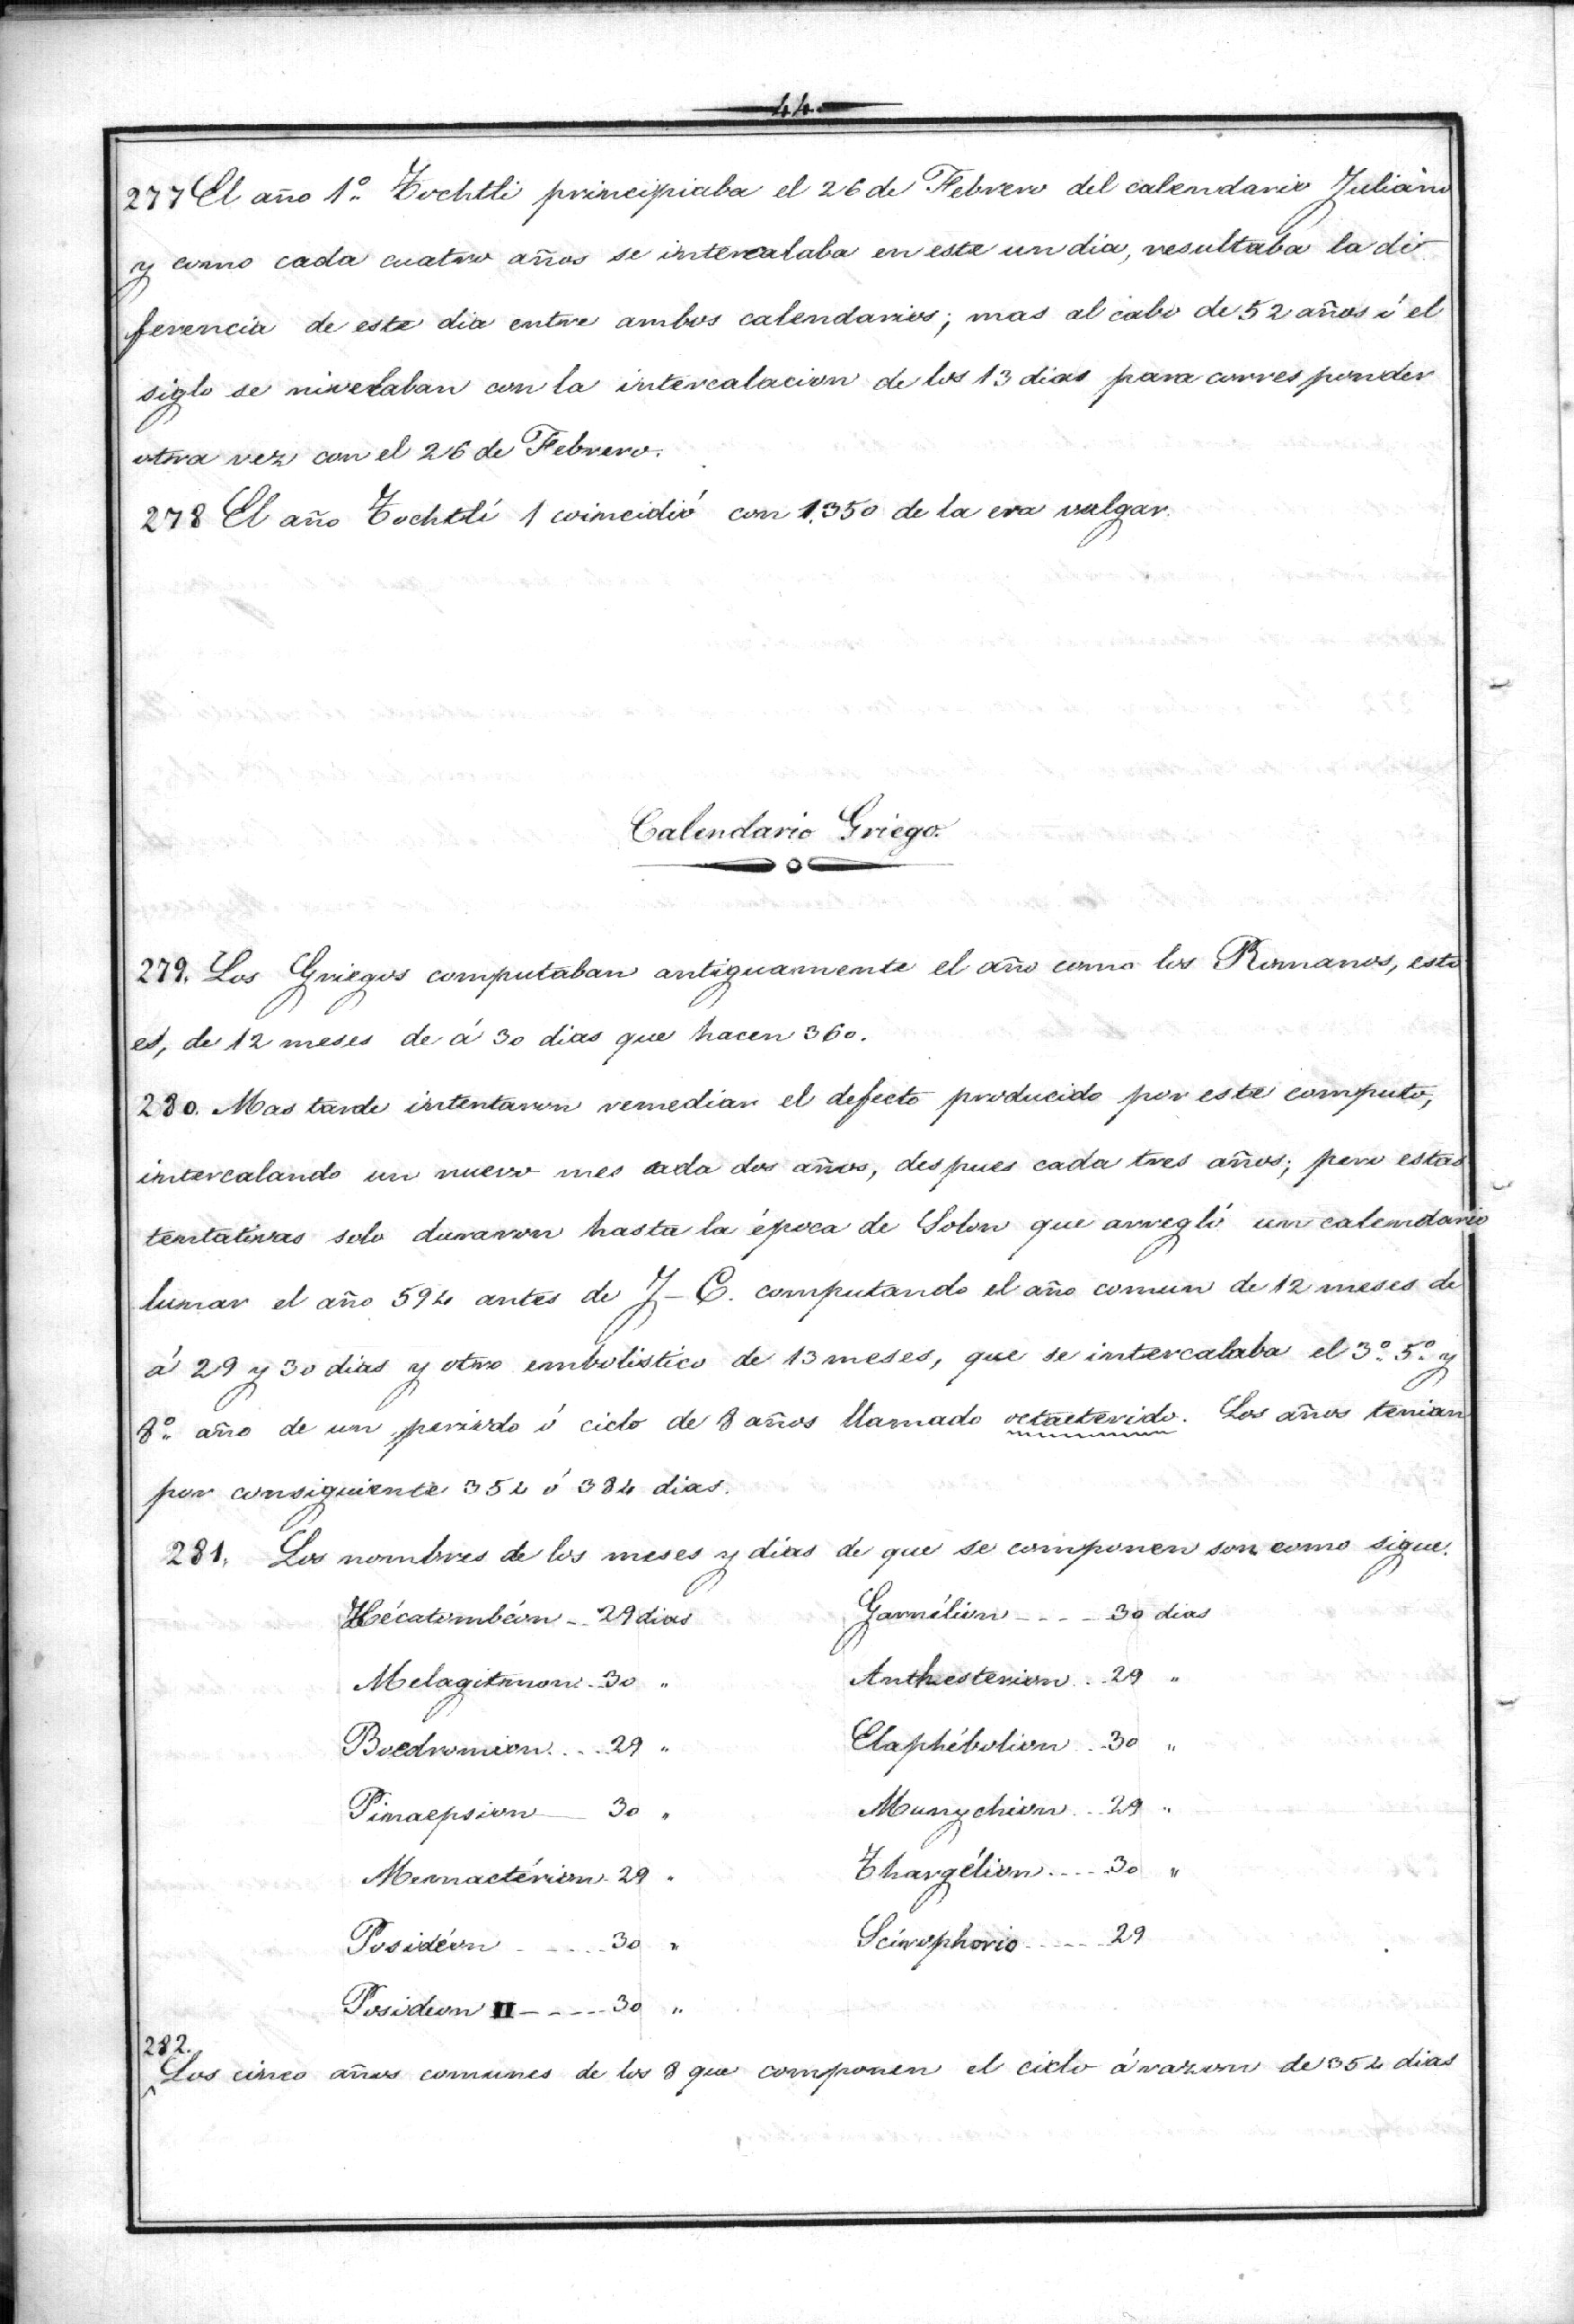 44
277 El año 1º Tochtli principiaba el 26 de Febrero del calendario Juliano
y como cada cuatro años se intercalaba en este un dia, resultaba la di
ferencia de este dia entre ambos calendarios; mas al cabo de 52 años ó el
siglo se nivelaban con la intercalacion de los 13 dias para corresponder
otra vez con el 26 de Febrero.
278 El año Tochtlí 1 coincidió con 1.350 de la era vulgar.
Calendario Griego.
279. Los Griegos computaban antiguamente el año como los Romanos, esto
es, de 12 meses de á 30 dias que hacen 360.
280. Mas tarde intentaron remediar el defecto producido por este computo,
intercalando un nuevo mes cada dos años, despues cada tres años; pero estas
tentativas solo duraron hasta la época de Solon que arregló un calendario
lunar el año 594 antes de J-C. computando el año comun de 12 meses de
á 29 y 30 dias y otro embolístico de 13 meses, que se intercalaba el 3º 5º y
8º año de un periodo ó ciclo de 8 años llamado octaeterido. Los años tenian
por consiguiente 354 ó 384 dias.
281. Los nombres de los meses y dias de que se componen son como sigue.
Hécatombéon - 29 dias Gamélion - - - - 30 dias
Metagitnnon - 30 " Anthesterion . . 29 "
Boedromion . . . . 29 " Elaphébolion . . 30 "
Pinaepsion — 30 " Munychion . . 29 "
Memactérion - 29 " Thargélion . . . . 30 "
Posidéon - - - - - 30 " Scírophorio - - - - - 29
Posideon II - - - - - 30 "
282.
Los cinco años comunes de los 8 que componen el ciclo á razon de 354 dias